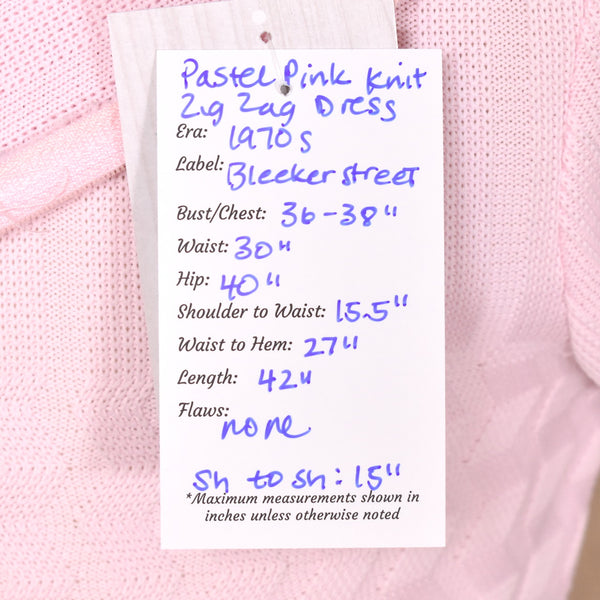 Pastel Pink Knit
Zig Zag Dress
Era: 1970s
Label: Bleeker street
Bust/Chest: 36-38"
Waist: 30"
Hip: 40"
Shoulder to Waist: 15.5"
Waist to Hem: 27"
Length: 42"
Flaws: none
Sh to sh: 15"
*Maximum measurements shown in
inches unless otherwise noted